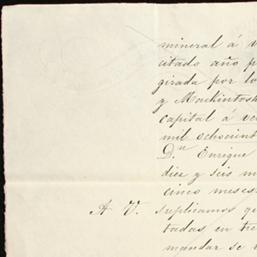 mineral á v
citado año p
girada por lo
y Mackintosh
capital á ve
mil ochocient
Dn Enrique
diez y seis m
cinco meses
A V. suplicamos qu
tadas en tre
mandar se r